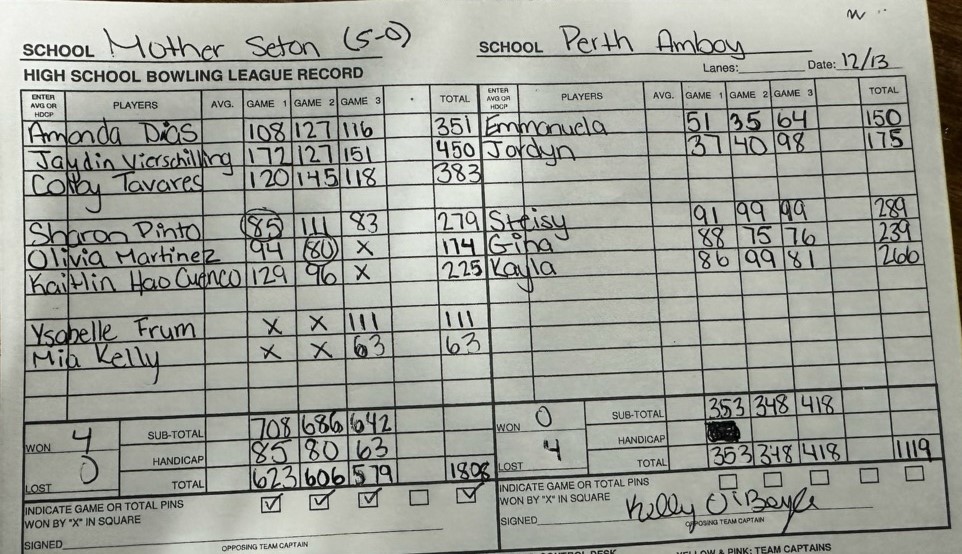 SCHOOL Mother Seton (5-0) SCHOOL Perth Amboy
HIGH SCHOOL BOWLING LEAGUE RECORD Lanes: Date: 12/13
ENTER AVG OR HDCP PLAYERS AVG. GAME 1 GAME 2 GAME 3 TOTAL ENTER AVG OR HDCP PLAYERS AVG. GAME 1 GAME 2 GAME 3 TOTAL
Amanda Dias 108 127 116 351 Emmanuela 51 35 64 150
Jaydin Vierschilling 172 127 151 450 Jordyn 37 40 98 175
Colby Tavares 120 145 118 383
Sharon Pinto 85 111 83 279 Steisy 91 99 99 289
Olivia Martinez 94 80 X 174 Gina 88 75 76 239
Kaitlin Hao Cuenco 129 96 X 225 Kayla 86 99 81 266
Ysabelle Frum X X 111 111
Mia Kelly X X 63 63
WON 4 SUB-TOTAL 708 686 642 WON 0 SUB-TOTAL 353 348 418
HANDICAP 85 80 63 HANDICAP
LOST 0 TOTAL 623 606 579 1808 LOST 4 TOTAL 353 348 418 1119
INDICATE GAME OR TOTAL PINS WON BY "X" IN SQUARE INDICATE GAME OR TOTAL PINS WON BY "X" IN SQUARE
SIGNED OPPOSING TEAM CAPTAIN SIGNED Kelly O'Boyle OPPOSING TEAM CAPTAIN
CONTROL DESK YELLOW & PINK: TEAM CAPTAINS